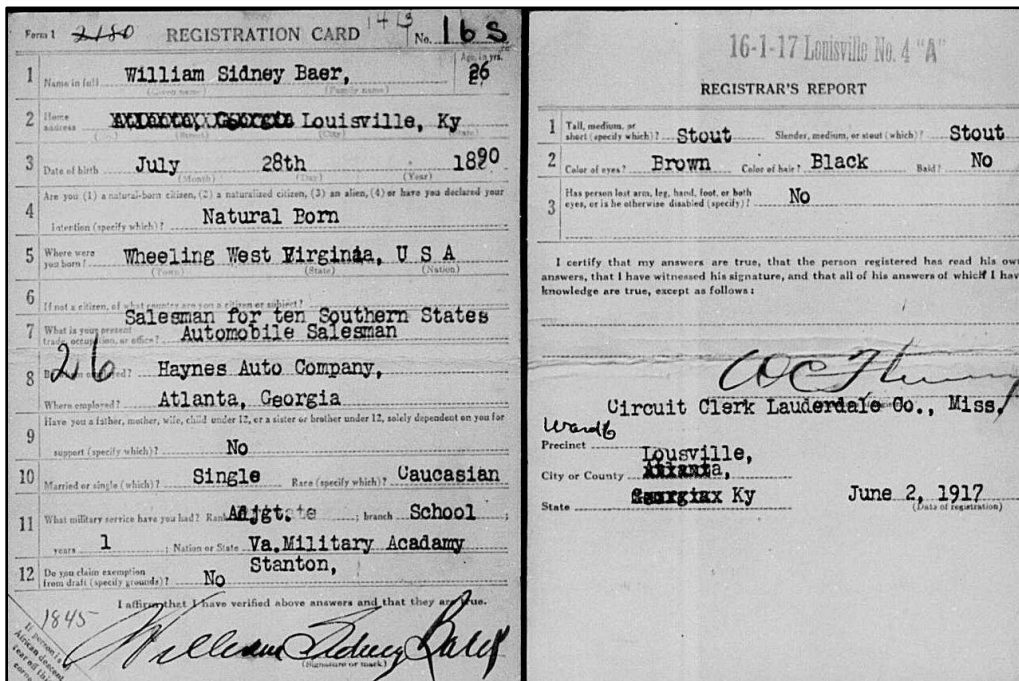 Form 1 2180 REGISTRATION CARD 1413 No. 168
1 Name in full William Sidney Baer, Age, in yrs. 26
(Given name) (Family name)
2 Home address Atlanta, Georgia Louisville, Ky
(Street) (City) (State)
3 Date of birth July 28th 1890
(Month) (Day) (Year)
Are you (1) a natural-born citizen, (2) a naturalized citizen, (3) an alien, (4) or have you declared your
4 intention (specify which)? Natural Born
5 Where were you born? Wheeling West Virginia, U S A
(Town) (State) (Nation)
6 If not a citizen, of what country are you a citizen or subject?
Salesman for ten Southern States
7 What is your present trade, occupation, or office? Automobile Salesman
26
8 By whom employed? Haynes Auto Company,
Where employed? Atlanta, Georgia
Have you a father, mother, wife, child under 12, or a sister or brother under 12, solely dependent on you for
9 support (specify which)? No
10 Married or single (which)? Single Race (specify which)? Caucasian
11 What military service have you had? Rank Adjgt. ; branch School ;
years 1 ; Nation or State Va.Military Acadamy
Stanton,
12 Do you claim exemption from draft (specify grounds)? No
I affirm that I have verified above answers and that they are true.
1845
William Sidney Baer
(Signature or mark)
If person is
African descent,
tear off this
corner
16-1-17 Louisville No. 4 "A"
REGISTRAR'S REPORT
1 Tall, medium, or short (specify which)? Stout Slender, medium, or stout (which)? Stout
2 Color of eyes? Brown Color of hair? Black Bald? No
3 Has person lost arm, leg, hand, foot, or both eyes, or is he otherwise disabled (specify)? No
I certify that my answers are true, that the person registered has read his own
answers, that I have witnessed his signature, and that all of his answers of which I have
knowledge are true, except as follows:
Circuit Clerk Lauderdale Co., Miss.
Precinct Ward 6
City or County Lousville,
Atlanta,
State Georgiax Ky June 2, 1917
(Date of registration)